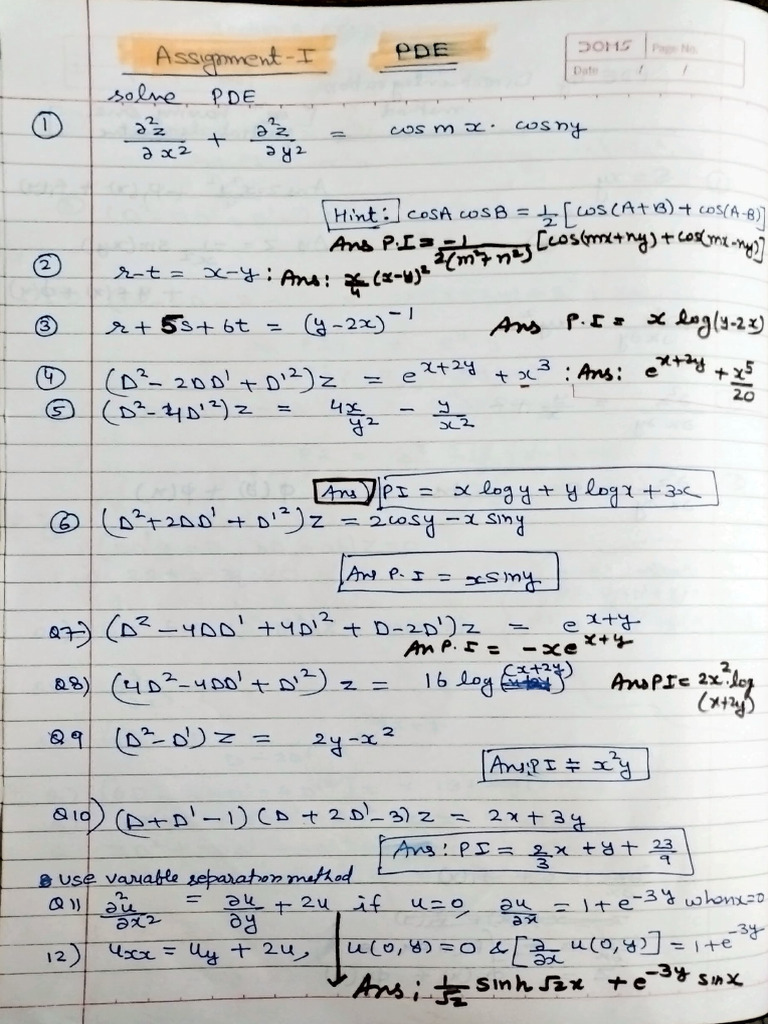 Assignment-I PDE
DOMS Page No.
Date / /
solve PDE
① ∂²z/∂x² + ∂²z/∂y² = cos mx · cos ny
Hint: cosA cosB = 1/2 [cos(A+B) + cos(A-B)]
Ans P.I = -1/2(m²+n²) [cos(mx+ny) + cos(mx-ny)]
② r-t = x-y : Ans: x/4 (x-y)²
③ r + 5s + 6t = (y-2x)⁻¹ Ans P.I = x log(y-2x)
④ (D² - 2DD' + D'²)z = e^(x+2y) + x³ : Ans: e^(x+2y) + x⁵/20
⑤ (D² - 4D'²)z = 4x/y² - y/x²
Ans) PI = x log y + y log x + 3x
⑥ (D² + 2DD' + D'²)z = 2cosy - x siny
Ans P.I = xsiny
Q7) (D² - 4DD' + 4D'² + D - 2D')z = e^(x+y)
An P.I = -xe^(x+y)
Q8) (4D² - 4DD' + D'²) z = 16 log (x+2y) Ans PI = 2x² log
(x+2y)
Q9 (D² - D')z = 2y - x²
Ans: PI = x²y
Q10) (D + D' - 1) (D + 2D' - 3)z = 2x + 3y
Ans: PI = 2/3 x + y + 23/9
use variable separation method
Q11 ∂²u/∂x² = ∂u/∂y + 2u if u=0, ∂u/∂x = 1 + e^(-3y) when x=0
12) uxx = uy + 2u, u(0,y) = 0 & [∂/∂x u(0,y)] = 1 + e^(-3y)
Ans: 1/√2 sinh √2x + e^(-3y) sinx